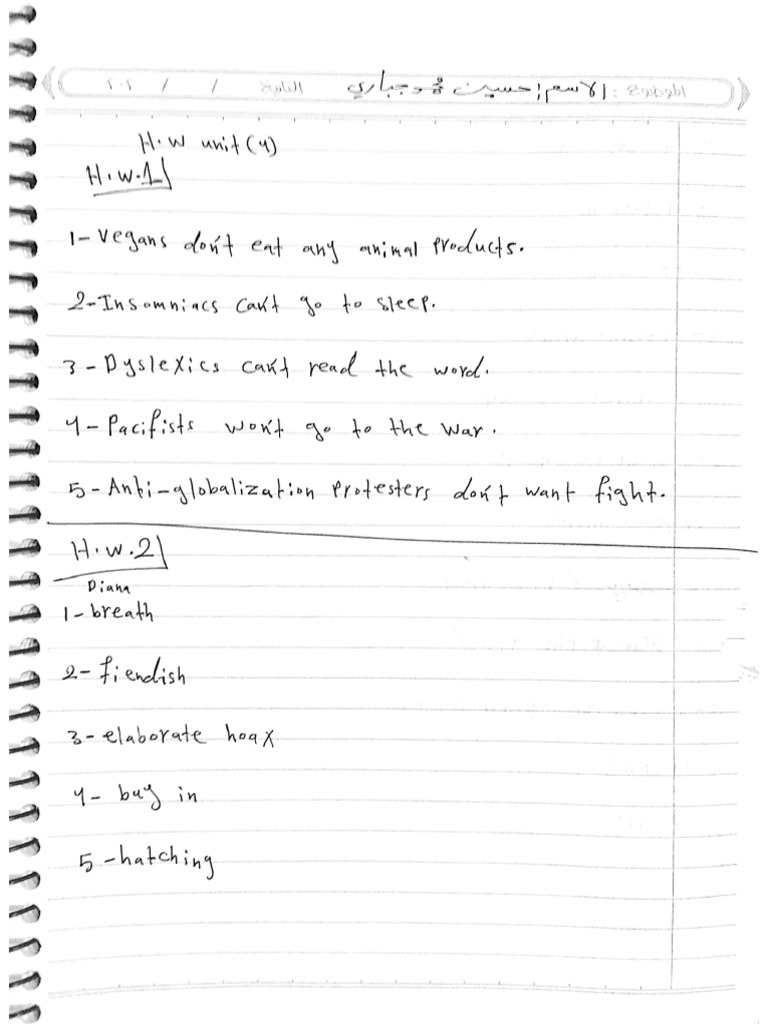 الموضوع : الاسم : حسين جباري التاريخ / / ٢٠٢
H.W unit (4)
H.W.1
1- Vegans don't eat any animal products.
2- Insomniacs can't go to sleep.
3- Dyslexics can't read the word.
4- Pacifists won't go to the war.
5- Anti-globalization protesters don't want fight.
H.W.2
Diana
1- breath
2- fiendish
3- elaborate hoax
4- buy in
5- hatching